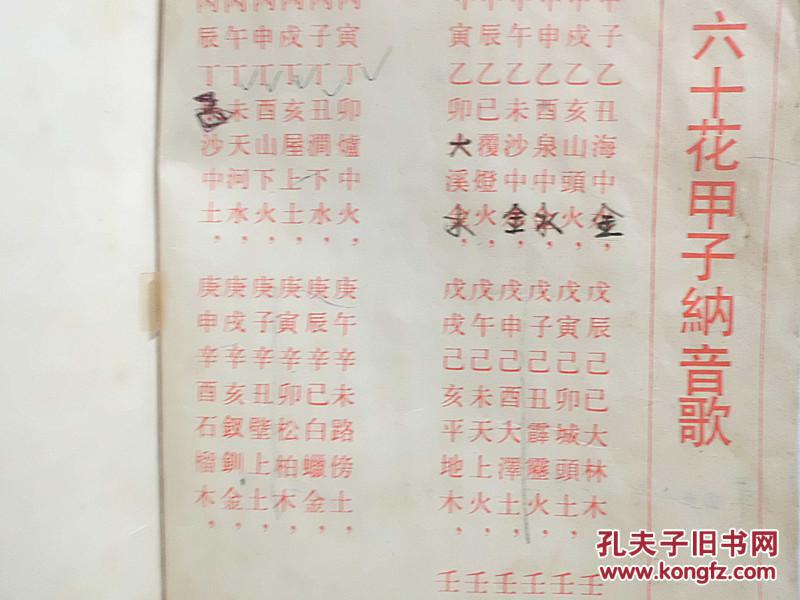 六十花甲子納音歌
甲子乙丑海中金，
甲戌乙亥山頭火，
甲申乙酉泉中水，
甲午乙未沙中金，
甲辰乙巳覆燈火，
甲寅乙卯大溪水，
丙寅丁卯爐中火，
丙子丁丑澗下水，
丙戌丁亥屋上土，
丙申丁酉山下火，
丙午丁未天河水，
丙辰丁巳沙中土，
戊辰己巳大林木，
戊寅己卯城頭土，
戊子己丑霹靂火，
戊申己酉大澤土，
戊午己未天上火，
戊戌己亥平地木，
庚午辛未路傍土，
庚辰辛巳白蠟金，
庚寅辛卯松柏木，
庚子辛丑壁上土，
庚戌辛亥釵釧金，
庚申辛酉石榴木，
壬
壬
壬
壬
壬
壬
孔夫子旧书网
www.kongfz.com